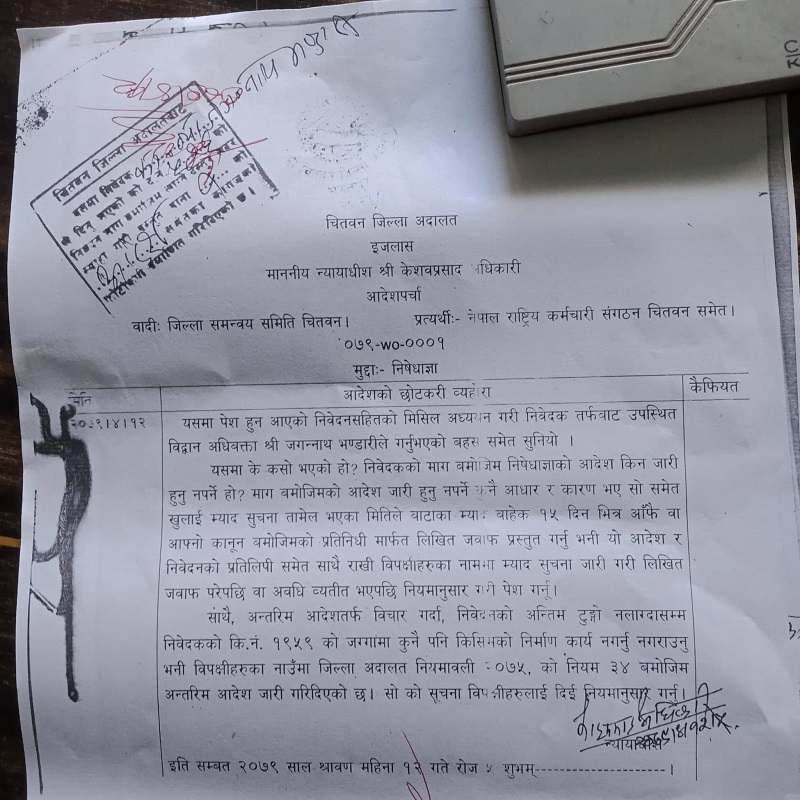 चितवन जिल्ला अदालतबाट
चितवन जिल्ला अदालत
इजलास
माननीय न्यायाधीश श्री केशवप्रसाद अधिकारी
आदेशपर्चा
वादीः जिल्ला समन्वय समिति चितवन। प्रत्यर्थीः- नेपाल राष्ट्रिय कर्मचारी संगठन चितवन समेत।
०७९-wo-०००१
मुद्दाः- निषेधाज्ञा
मिति आदेशको छोटकरी व्यहोरा कैफियत
२०७९।४।१२ यसमा पेश हुन आएको निवेदनसहितको मिसिल अध्ययन गरी निवेदक तर्फबाट उपस्थित
विद्वान अधिबक्ता श्री जगन्नाथ भण्डारीले गर्नुभएको बहस समेत सुनियो ।
यसमा के कसो भएको हो? निवेदकको माग बमोजिम निषेधाज्ञाको आदेश किन जारी
हुनु नपर्ने हो? माग बमोजिमको आदेश जारी हुनु नपर्ने कुनै आधार र कारण भए सो समेत
खुलाई म्याद सुचना तामेल भएका मितिले बाटाका म्याद बाहेक १५ दिन भित्र आँफै वा
आफ्नो कानून बमोजिमको प्रतिनिधी मार्फत लिखित जवाफ प्रस्तुत गर्नु भनी यो आदेश र
निवेदनको प्रतिलिपी समेत साथै राखी विपक्षीहरुका नाममा म्याद सुचना जारी गरी लिखित
जवाफ परेपछि वा अवधि व्यतीत भएपछि नियमानुसार गरी पेश गर्नू।
साथै, अन्तरिम आदेशतर्फ विचार गर्दा, निवेदनको अन्तिम टुङ्गो नलाग्दासम्म
निवेदकको कि.नं. १९५९ को जग्गामा कुनै पनि किसिमको निर्माण कार्य नगर्नु नगराउनु
भनी विपक्षीहरुका नाउँमा जिल्ला अदालत नियमावली २०७५, को नियम ३४ बमोजिम
अन्तरिम आदेश जारी गरिदिएको छ। सो को सूचना विपक्षीहरुलाई दिई नियमानुसार गर्नु।
न्यायाधीश
इति सम्बत २०७९ साल श्रावण महिना १२ गते रोज ५ शुभम्-------------------।